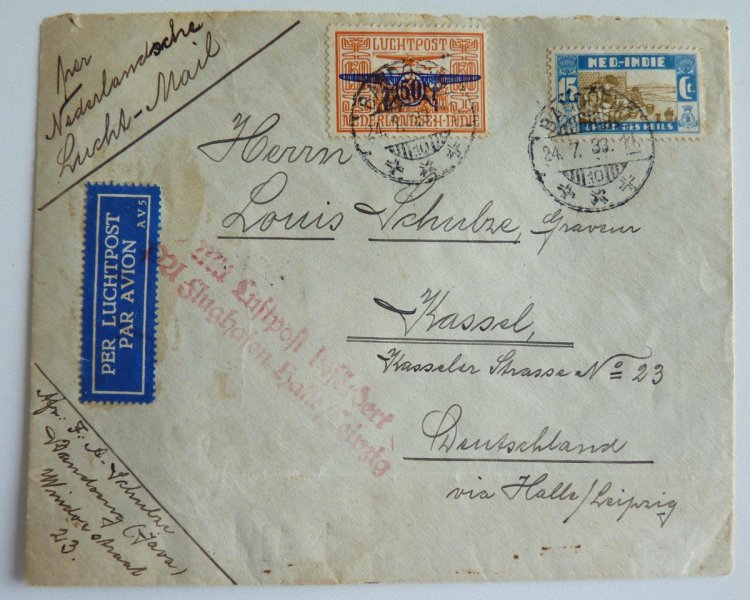 per
Nederlandsche
Lucht-Mail
LUCHTPOST
150 150
50
NEDERLANDSCH-INDIE
NED-INDIE
15 Ct.
LEGER DES HEILS
BANDOENG
24.7.33
Herrn
Louis Schulze, Graveur
Kassel,
Kasseler Strasse No 23
Deutschland
via Halle/Leipzig
PER LUCHTPOST
PAR AVION
AV5
Mit Luftpost befördert
Flughafen Halle/Leipzig
Afz. F. A. Schulze
Bandoeng (Java)
straat
23.